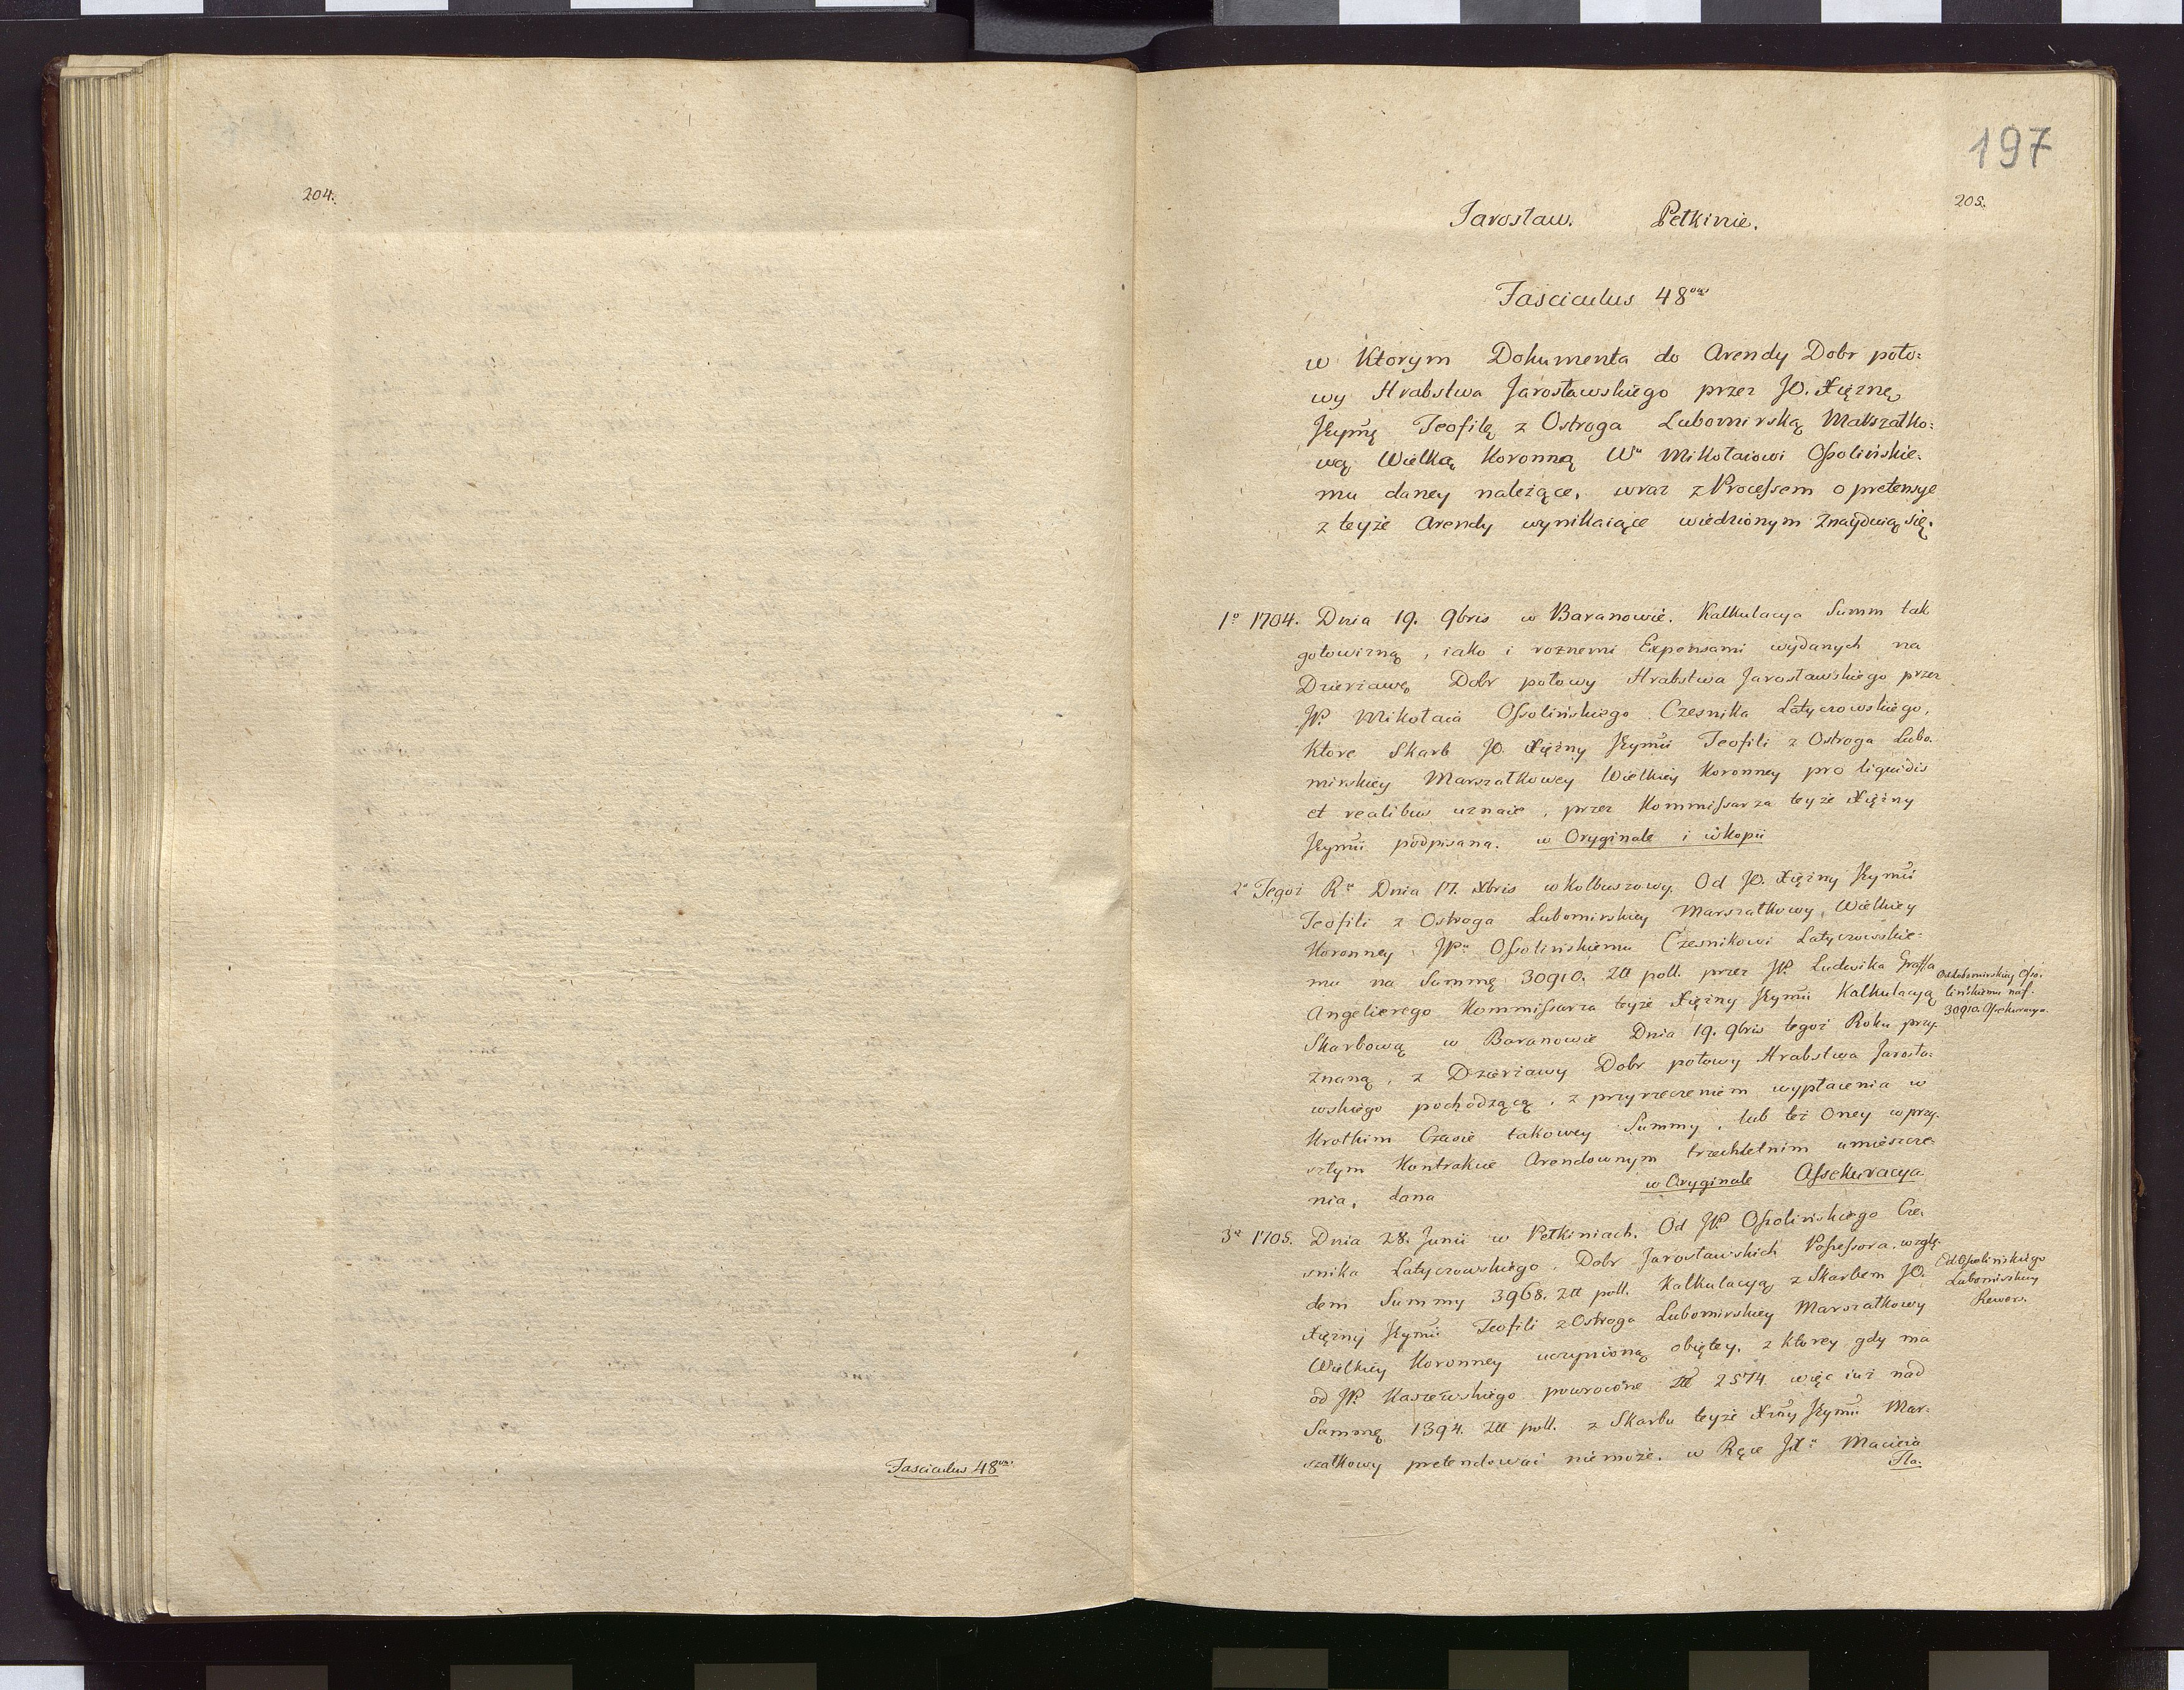 204.
Fasciculus 48us
197
205.
Jarosław. Pełkinie.
Fasciculus 48us
w Ktorym Dokumenta do Arendy Dobr poło:
wy Hrabstwa Jarosławskiego przez JO. Xiężnę
Jeymę Teofilę z Ostroga Lubomirską Marszałko:
wą Wielką Koronną Wu Mikołaiowi Ossolińskie:
mu daney należące, wraz z Processem o pretensye
z teyże Arendy wynikaiące wiedzionym znayduią się.
1o 1704. Dnia 19. 9bris w Baranowie. Kalkulacya Summ tak
gotowizną, iako i roznemi Expensami wydanych na
Dzierżawę Dobr połowy Hrabstwa Jarosławskiego przez
JP. Mikołaia Ossolińskiego Czesnika Latyczowskiego,
Ktore Skarb JO. Xiężny Jeymći Teofili z Ostroga Lubo:
mirskiey Marszałkowey Wielkiey Koronney pro liquidis
et realibus uznaie, przez Kommissarza teyże Xiężny
Jeymći podpisana. w Oryginale i w kopii
2o Tegoż Ru Dnia 17. Xbris w Kolbuszowy. Od JO. Xiężny Jeymći
Teofili z Ostroga Lubomirskiey Marszałkowy Wielkiey
Koronney JPu Ossolińskiemu Czesnikowi Latyczowskie:
mu na Summę 30910. Złł poll. przez JP. Ludwika Graffa
Angelierego Kommissarza teyże Xiężny Jeymći Kalkulacyą
Skarbową w Baranowie Dnia 19. 9bris tegoż Roku przy:
znaną, z Dzierżawy Dobr połowy Hrabstwa Jarosła:
wskiego pochodzącą, z przyrzeczeniem wypłacenia w
Krotkim Czasie takowey Summy, lub też Oney w przy:
szłym Kontrakcie Arendownym trzechletnim umieszcze:
nia, dana w Oryginale Assekuracya.
Od Lubomirskiey Osso:
lińskiemu na f.
30910. Assekuracya.
3o 1705. Dnia 28. Junii w Pełkiniach. Od JP. Ossolińskiego Cze:
snika Latyczowskiego, Dobr Jarosławskich Possessora, wzglę:
dem Summy 3968. Złł poll. Kalkulacyą z Skarbem JO.
Xiężny Jeymći Teofili z Ostroga Lubomirskiey Marszałkowy
Wielkiey Koronney uczynioną obiętey, z ktorey gdy ma
od JP. Kaszewskiego powrocone Złł 2574. więc iuż nad
Summę 1394. Złł poll. z Skarbu teyże Xżny Jeymći Mar:
szałkowy pretendować nie może, w Ręce Macieia
Od Ossolińskiego
Lubomirskiey
Rewers.